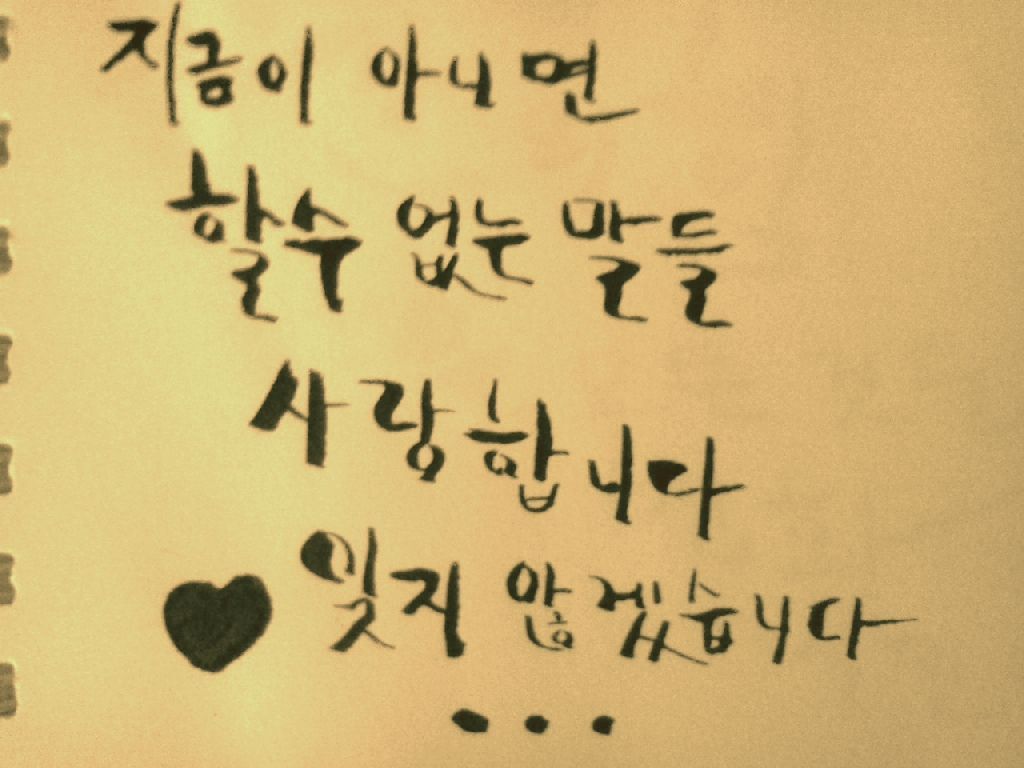 지금이 아니면
할수 없는 말들
사랑합니다
♥ 잊지 않겠습니다
...